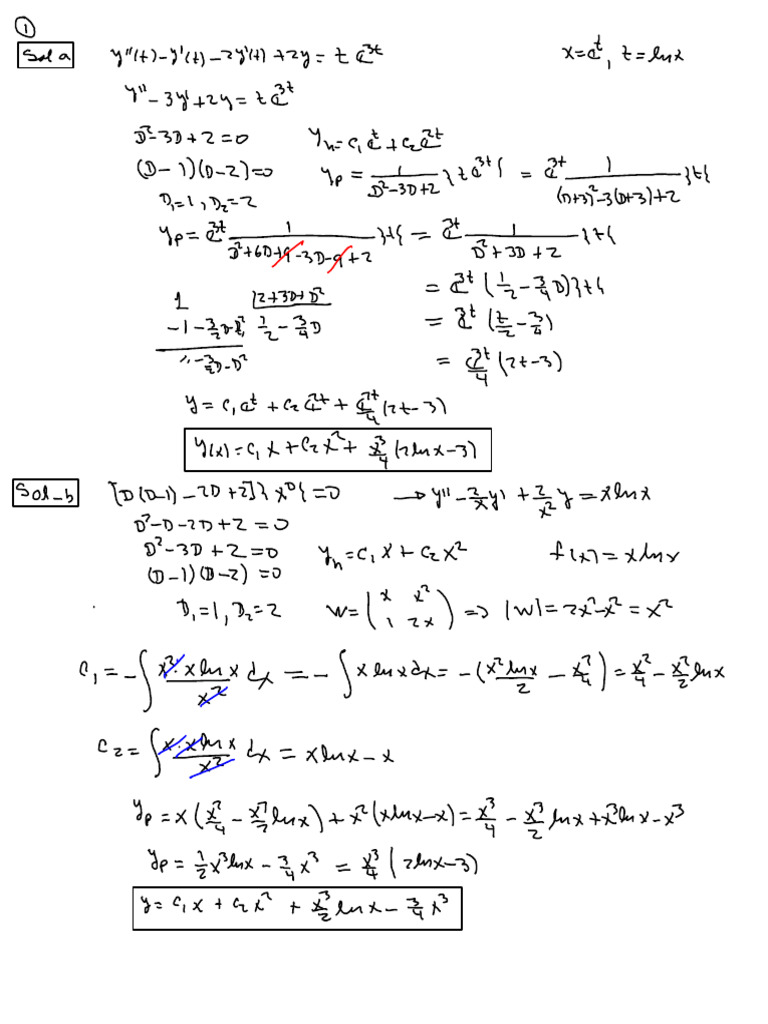 ①
Sol a y''(t) - y'(t) - 2y'(t) + 2y = t e^{3t} x = e^t, t = ln x
y'' - 3y' + 2y = t e^{3t}
D² - 3D + 2 = 0 y_h = c₁e^t + c₂e^{2t}
(D - 1)(D - 2) = 0 y_p = 1/(D² - 3D + 2) }t e^{3t}{ = e^{3t} 1/((D+3)² - 3(D+3) + 2) }t{
D₁ = 1, D₂ = 2
y_p = e^{3t} 1/(D² + 6D + 9 - 3D - 9 + 2) }t{ = e^{3t} 1/(D² + 3D + 2) }t{
1 |2 + 3D + D² = e^{3t} (1/2 - 3/4 D) }t{
-1 - 3/2 D - D²/2 1/2 - 3/4 D = e^{3t} (t/2 - 3/4)
,, - 3/2 D - D² = e^{3t}/4 (2t - 3)
y = c₁e^t + c₂e^{2t} + e^{3t}/4 (2t - 3)
y(x) = c₁x + c₂x² + x³/4 (2 ln x - 3)
Sol_b [D(D-1) - 2D + 2] }x^D{ = 0 → y'' - 2/x y' + 2/x² y = x ln x
D² - D - 2D + 2 = 0
D² - 3D + 2 = 0 y_h = c₁x + c₂x² f(x) = x ln x
(D - 1)(D - 2) = 0
D₁ = 1, D₂ = 2 W = (x x² ; 1 2x) ⇒ |W| = 2x² - x² = x²
c₁ = -∫ x²·x ln x / x² dx = -∫ x ln x dx = -(x² ln x / 2 - x²/4) = x²/4 - x²/2 ln x
c₂ = ∫ x·x ln x / x² dx = x ln x - x
y_p = x(x²/4 - x²/2 ln x) + x²(x ln x - x) = x³/4 - x³/2 ln x + x³ ln x - x³
y_p = 1/2 x³ ln x - 3/4 x³ = x³/4 (2 ln x - 3)
y = c₁x + c₂x² + x³/2 ln x - 3/4 x³